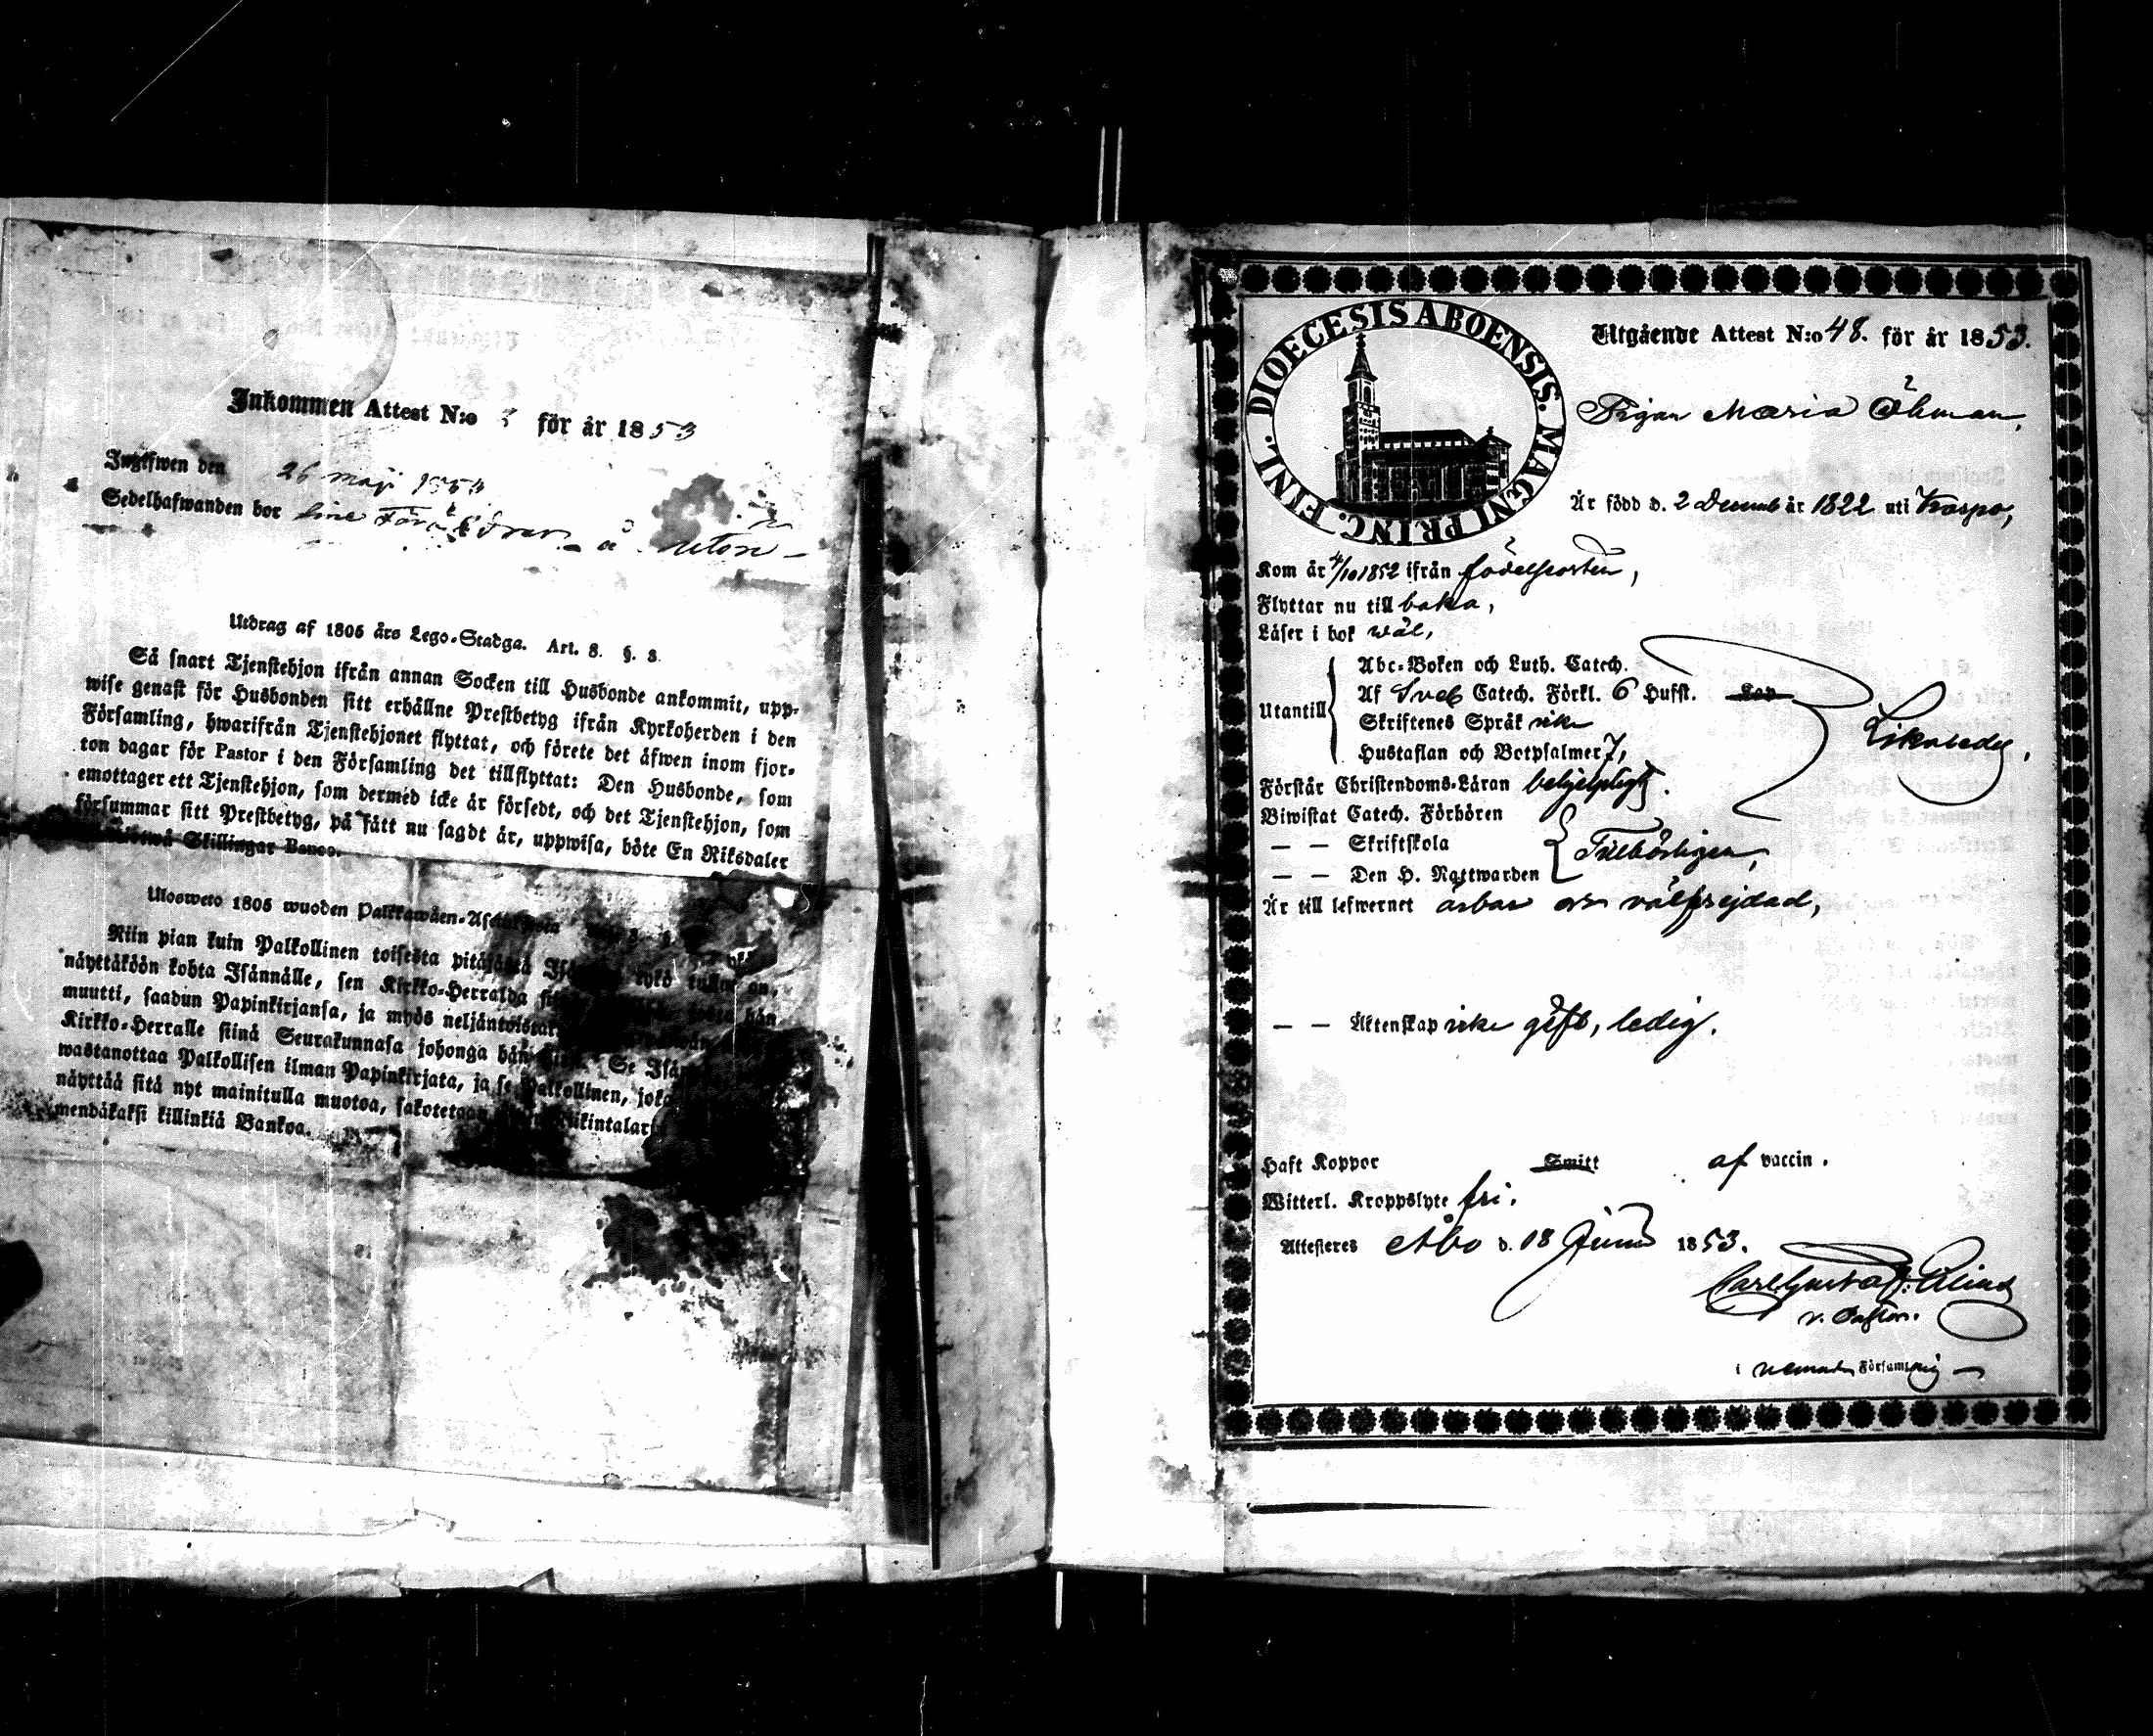 Inkommen Attest N:o för år 1853
Ingifwen den 26 maji 1853
Sedelhafwanden bor sine Föräldrar å utön
Utdrag af 1805 års Lego-Stadga. Art. 8. §. 3.
Så snart Tjenstehjon ifrån annan Socken till Husbonde ankommit, upp-
wise genast för Husbonden sitt erhållne Prestbetyg ifrån Kyrkoherden i den
Församling, hwarifrån Tjenstehjonet flyttat, och förete det äfwen inom fjor-
ton dagar för Pastor i den Församling det tillflyttat: Den Husbonde, som
emottager ett Tjenstehjon, som dermed icke är försedt, och det Tjenstehjon, som
försummar sitt Prestbetyg, på sätt nu sagdt är, uppwisa, böte En Riksdaler
Skillingar Banco.
Ulosweto 1805 wuoden Palkkawäen-
Niin pian kuin Palkollinen toisesta pitäjästä tykö tullut on,
näyttäköön kohta Isännälle, sen Kirkko-Herralda hän
muutti, saadun Papinkirjansa, ja myös
Kirkko-Herralle siinä Seurakunnasa johonga hän Se
wastanottaa Palkollisen ilman Papinkirjata, ja se Palkollinen, joka
näyttää sitä nyt mainitulla muotoa, sakotetaan
mendäkaksi killinkiä Bankoa.
DIOECESIS ABOENSIS. MAGNI PRINC. FINL.
Utgående Attest N:o 48. för år 1853.
Pigan Maria Öhman,
Är född d. 2 Decemb år 1822 uti Korpo,
Kom år 4/10 1852 ifrån födelseorten,
Flyttar nu till baka,
Läser i bok wäl,
Utantill
Abc-Boken och Luth. Catech.
Af Sveb Catech. Förkl. 6 Hufst. Kap
Skriftenes Språk icke
Hustaflan och Botpsalmer 7,
Förstår Christendoms-Läran behjelpligt.
Biwistat Catech. Förhören
— — Skriftskola
— — Den H. Nattwarden
Tillbörligen,
Är till lefwernet ärbar och välfrejdad,
— — Äktenskap icke gift, ledig.
Haft Koppor Smitt af vaccin.
Witterl. Kroppslyte fri.
Attesteres Åbo d. 18 Junii 1853.
Carl Gustaf
v. Pastor.
i Församling